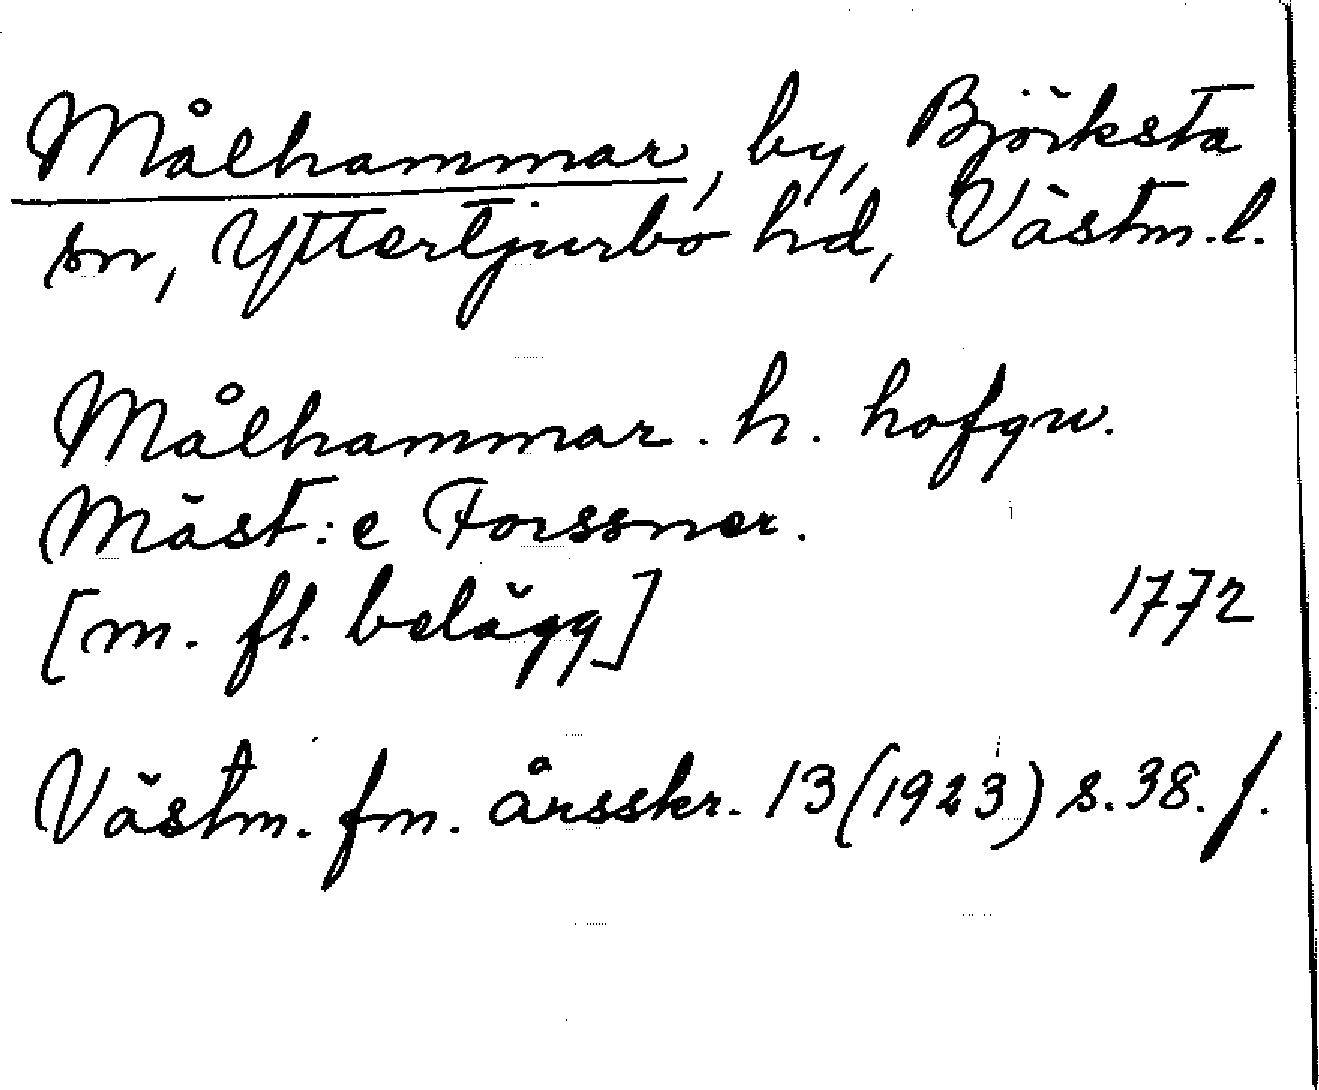 Målhammar, by, Björksta
sn, Yttertjurbo hd, Västm. l.
Målhammar. h. hofqv.
Mäst:e Forssner.
[m. fl. belägg] 1772
Västm. fm. årsskr. 13 (1923) s. 38. f.